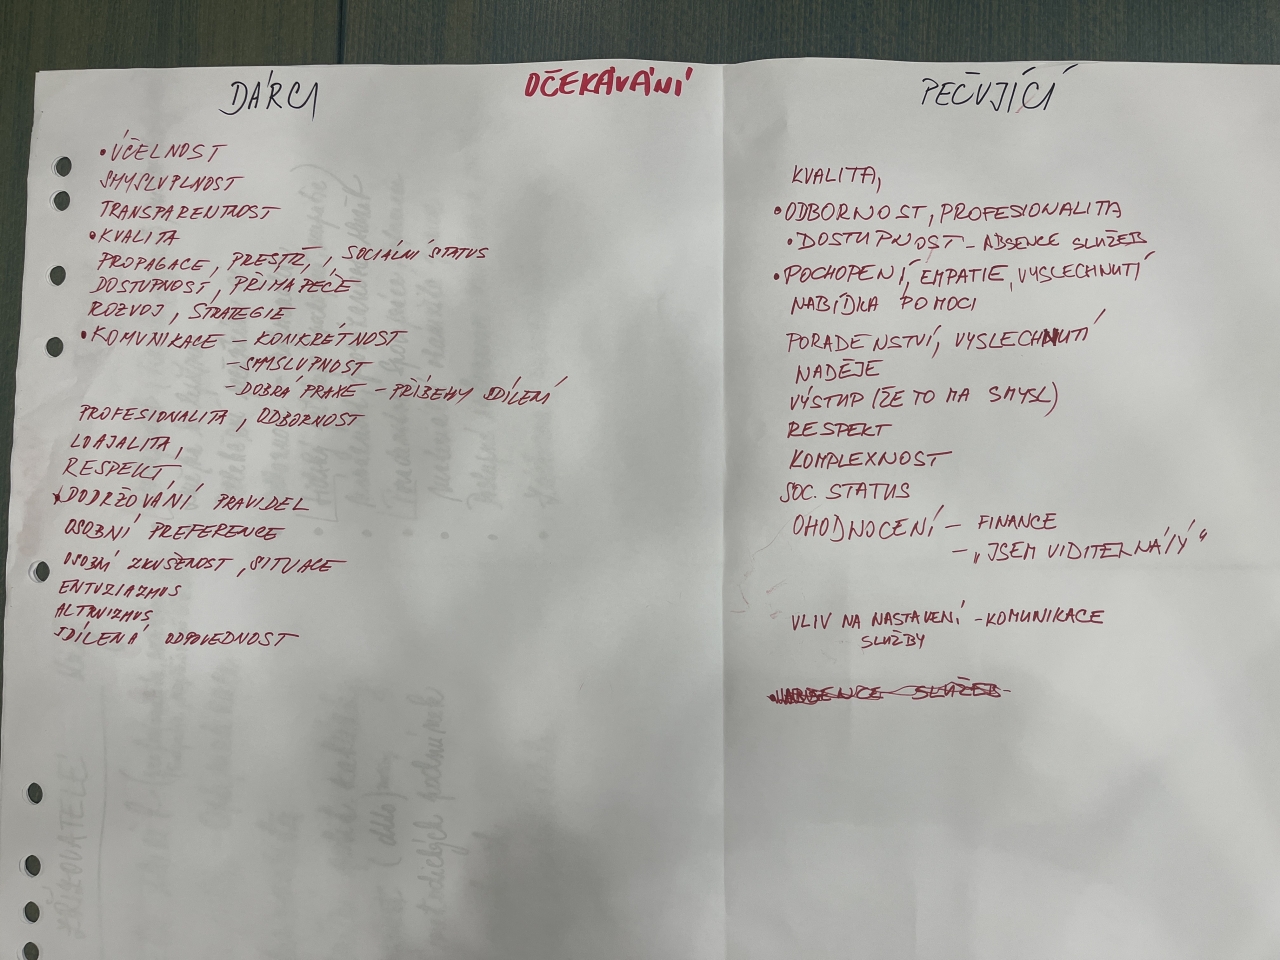 OČEKÁVÁNÍ
DÁRCI
• ÚČELNOST
SMYSLUPLNOST
TRANSPARENTNOST
• KVALITA
PROPAGACE, PRESTIŽ, SOCIÁLNÍ STATUS
DOSTUPNOST, PŘÍMÁ PÉČE
ROZVOJ, STRATEGIE
• KOMUNIKACE – KONKRÉTNOST
– SMYSLUPNOST
– DOBRÁ PRAXE – PŘÍBĚHY SDÍLENÍ
PROFESIONALITA, ODBORNOST
LOAJALITA,
RESPEKT
DODRŽOVÁNÍ PRAVIDEL
OSOBNÍ PREFERENCE
OSOBNÍ ZKUŠENOST, SITUACE
ENTUZIAZMUS
ALTRUIZMUS
SDÍLENÁ ODPOVEDNOST
PEČUJÍCÍ
KVALITA,
• ODBORNOST, PROFESIONALITA
• DOSTUPNOST – ABSENCE SLUŽEB
• POCHOPENÍ, EMPATIE, VYSLECHNUTÍ
NABÍDKA POMOCI
PORADENSTVÍ, VYSLECHNUTÍ
NADĚJE
VÝSTUP (ŽE TO MA SMYSL)
RESPEKT
KOMPLEXNOST
SOC. STATUS
OHODNOCENÍ – FINANCE
– „JSEM VIDITELNÁ/Ý"
VLIV NA NASTAVENÍ – KOMUNIKACE
SLUŽBY
ZŘIZOVATELÉ